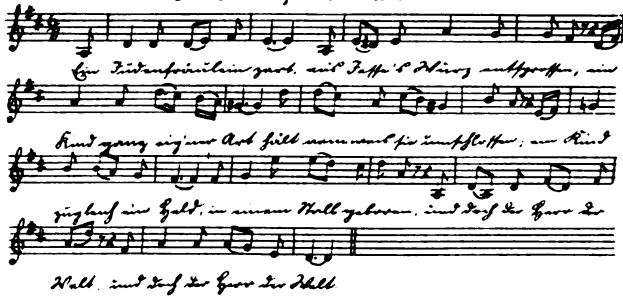 Ein Judenfräulein zart, aus Jesse's Wurz entsprossen, ein
Kind ganz eigner Art hält sie umschlossen; ein Kind
zugleich ein Held, in einem Stall geboren, und doch der Herr der
Welt. und doch der Herr der Welt.